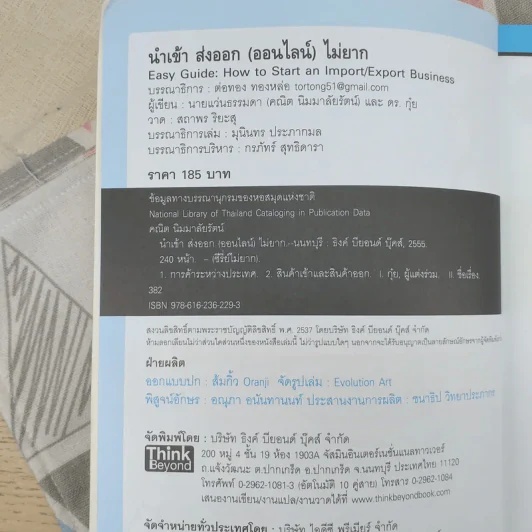 นำเข้า ส่งออก (ออนไลน์) ไม่ยาก
Easy Guide: How to Start an Import/Export Business
บรรณาธิการ : ต่อทอง ทองหล่อ tortong51@gmail.com
ผู้เขียน : นายแว่นธรรมดา (คณิต นิมมาลัยรัตน์) และ ดร. กุ๋ย
วาด : สถาพร ริยะสุ
บรรณาธิการเล่ม : มุนินทร ประภากมล
บรรณาธิการบริหาร : กรภัทร์ สุทธิดารา
ราคา 185 บาท
ข้อมูลทางบรรณานุกรมของหอสมุดแห่งชาติ
National Library of Thailand Cataloging in Publication Data
คณิต นิมมาลัยรัตน์
นำเข้า ส่งออก (ออนไลน์) ไม่ยาก.--นนทบุรี : ธิงค์ บียอนด์ บุ๊คส์, 2555.
240 หน้า. -- (ซีรี่ย์ไม่ยาก).
1. การค้าระหว่างประเทศ. 2. สินค้าเข้าและสินค้าออก. I. กุ๋ย, ผู้แต่งร่วม. II. ชื่อเรื่อง.
382
ISBN 978-616-236-229-3
สงวนลิขสิทธิ์ตามพระราชบัญญัติลิขสิทธิ์ พ.ศ. 2537 โดยบริษัท ธิงค์ บียอนด์ บุ๊คส์ จำกัด
ห้ามลอกเลียนไม่ว่าส่วนใดส่วนหนึ่งของหนังสือเล่มนี้ ไม่ว่ารูปแบบใดๆ นอกจากจะได้รับอนุญาตเป็นลายลักษณ์อักษรจากผู้จัดพิมพ์เท่านั้น
ฝ่ายผลิต
ออกแบบปก : ส้มกิ้ว Oranji จัดรูปเล่ม : Evolution Art
พิสูจน์อักษร : อณุภา อนันทานนท์ ประสานงานการผลิต : ชนาธิป วิทยาประภากร
จัดพิมพ์โดย : บริษัท ธิงค์ บียอนด์ บุ๊คส์ จำกัด
Think Beyond
200 หมู่ 4 ชั้น 19 ห้อง 1903A จัสมินอินเตอร์เนชั่นแนลทาวเวอร์
ถ.แจ้งวัฒนะ ต.ปากเกร็ด อ.ปากเกร็ด จ.นนทบุรี ประเทศไทย 11120
โทรศัพท์ 0-2962-1081-3 (อัตโนมัติ 10 คู่สาย) โทรสาร 0-2962-1084
เสนองานเขียน/งานแปล/งานวาดได้ที่ www.thinkbeyondbook.com
จัดจำหน่ายทั่วประเทศโดย : บริษัท ไอดีซี พรีเมียร์ จำกัด